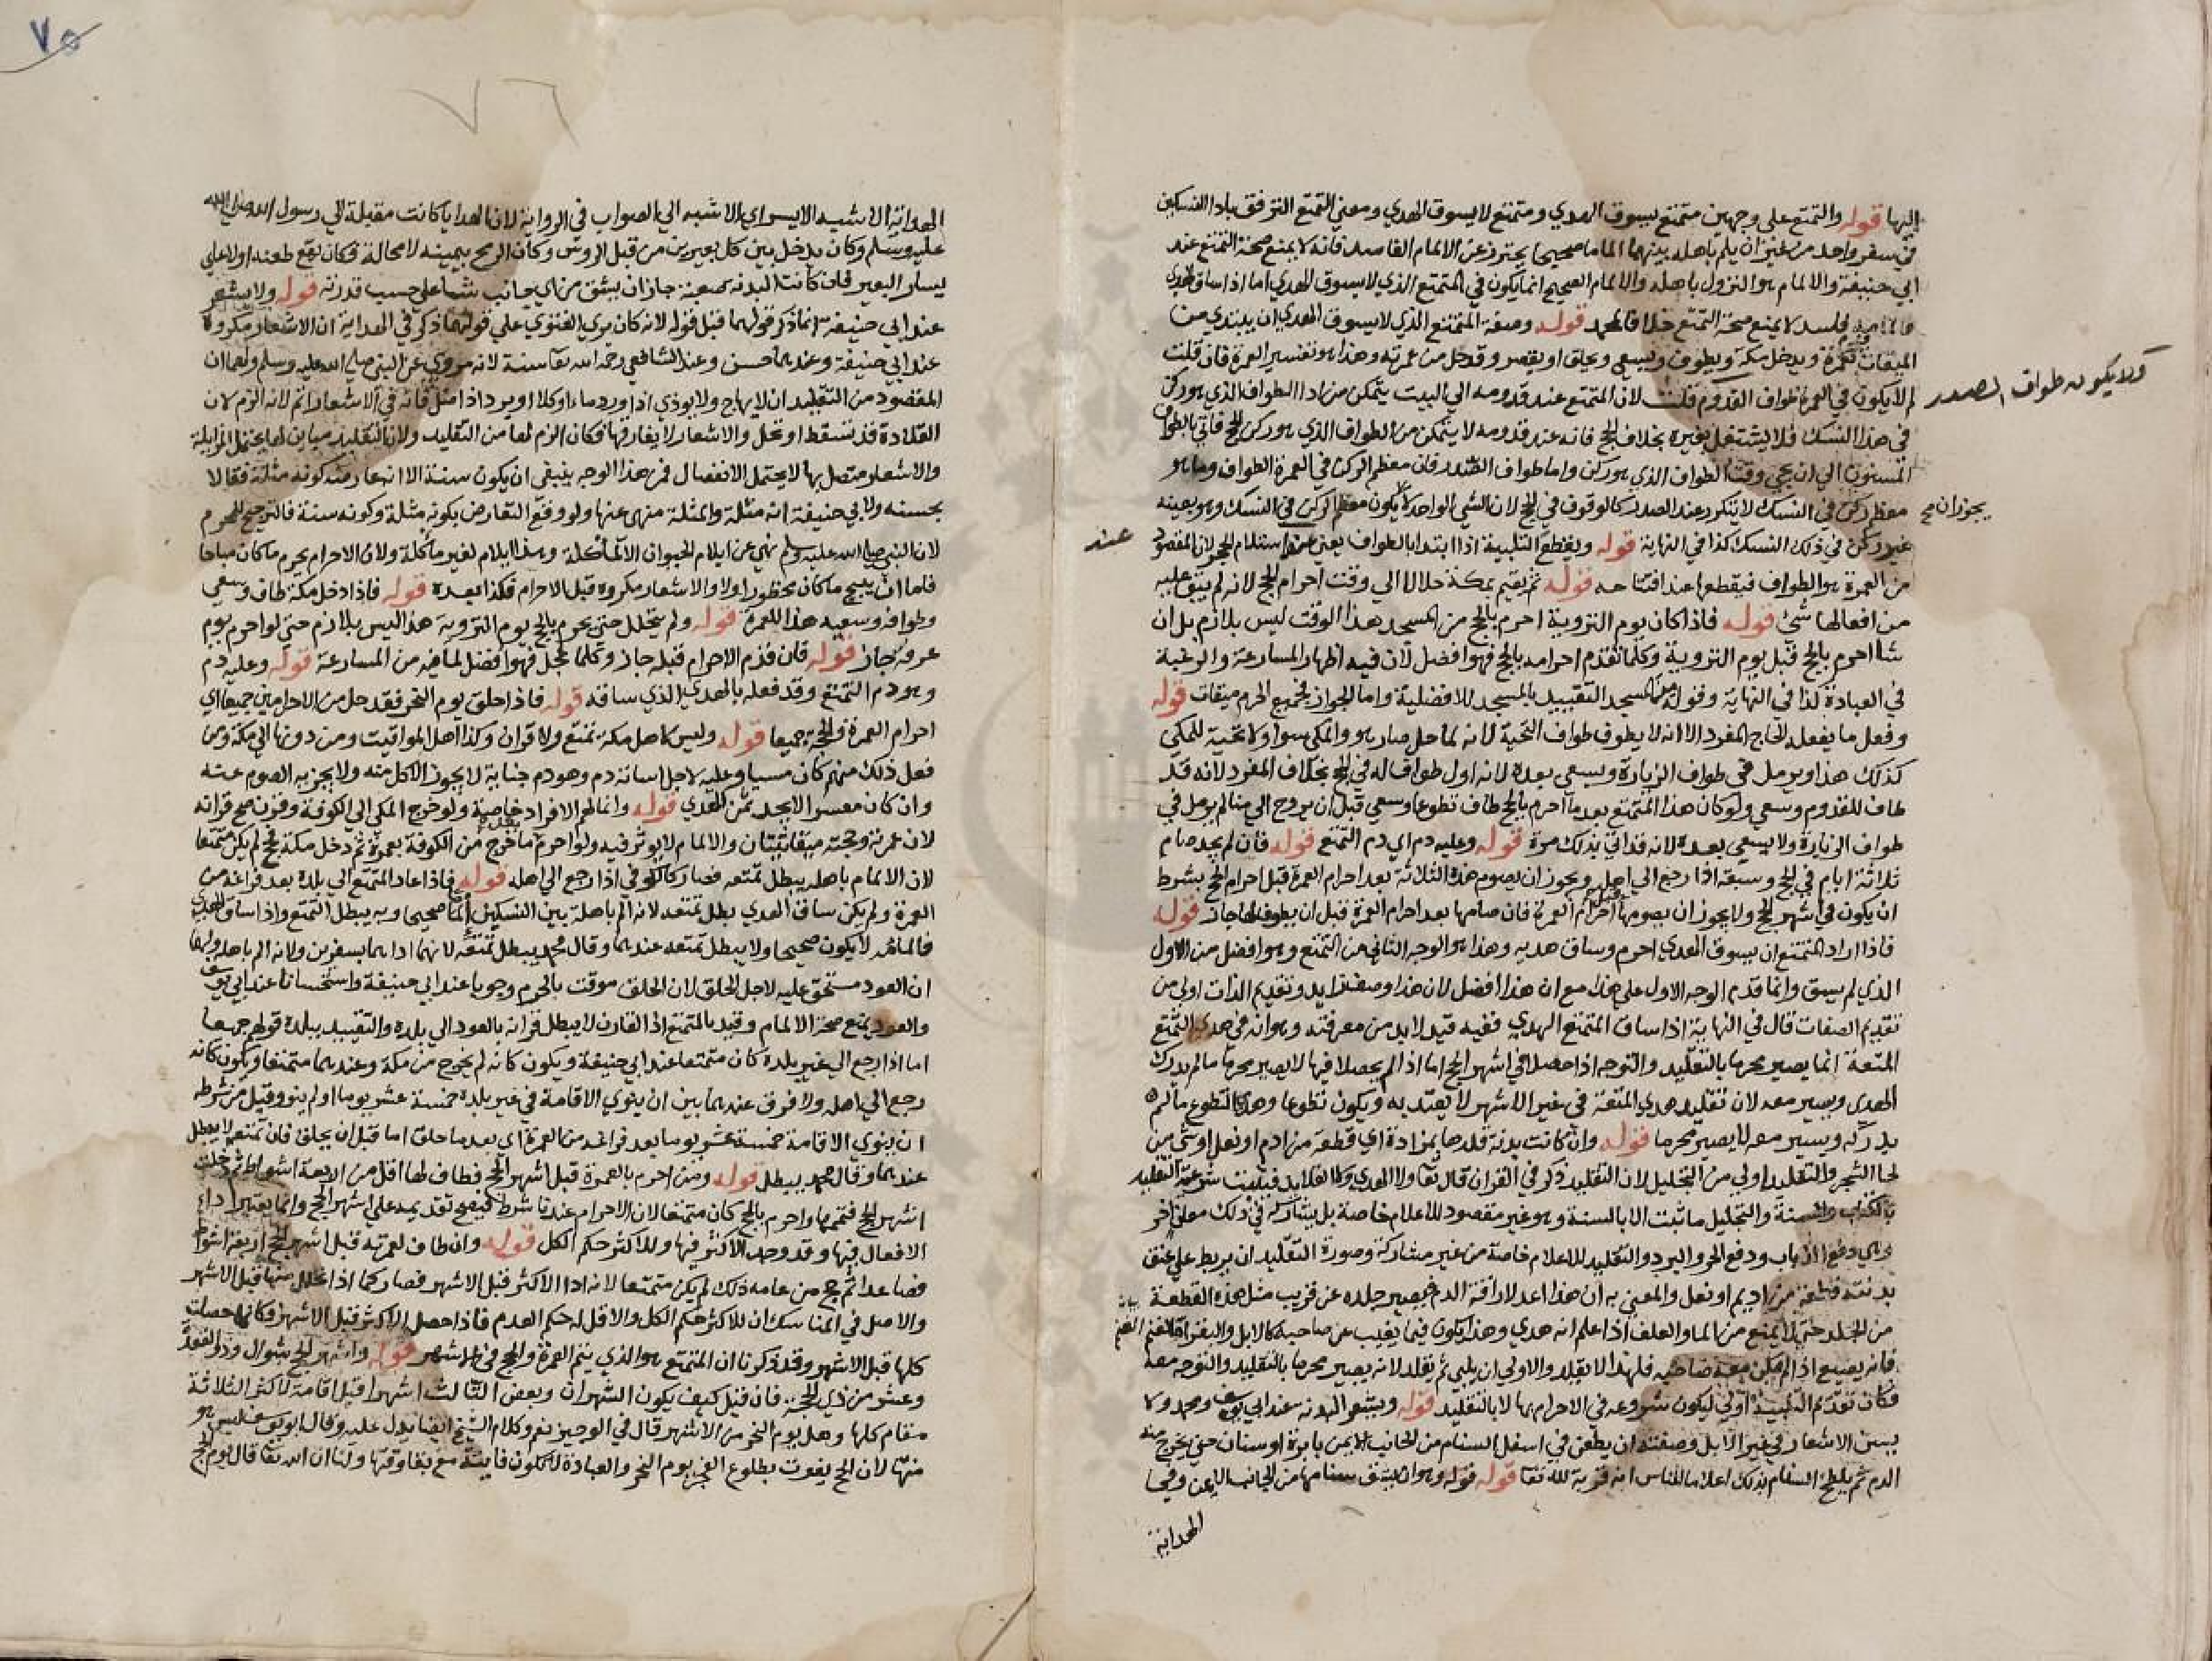 اليها قوله والتمتع علي وجهين متمتع يسوق الهدي ومتمتع لا يسوق الهدي ومعني التمتع الترفق باداالنسكين
في سفر واحد من غير ان يلم باهله بينهما الماما صحيحا يحترز عن الالمام الفاسد فانه لا يمنع صحة التمتع عند
ابي حنيفة والالمام هو النزول باهله والالمام الصحيح انما يكون في المتمتع الذي لا يسوق الهدي اما اذا ساق الهدي
فالمامه فاسد لا يمنع صحة التمتع خلافا لمحمد قوله وصفة المتمتع الذي لا يسوق الهدي ان يبتدي من
الميقات بعمرة ويدخل مكة ويطوف ويسعي ويحلق او يقصر وقد حل من عمرته وهذا هو تفسير العمرة فان قلت
لم لا يكون في العمرة طواف القدوم قلت لان المتمتع عند قدومه الي البيت يتمكن من اداالطواف الذي هو ركن
ولا يكون طواف الصدر
في هذا النسك فلا يشتغل بغيره بخلاف الحج فانه عند قدومه لا يتمكن من الطواف الذي هو ركن الحج فاتي بالطواف
المسنون الي ان يجي وقت الطواف الذي هو ركن واما طواف الصدر فان معظم الركن في العمرة الطواف وما هو
معظم ركن في النسك لا يتكرر عند الصدر كالوقوف في الحج لان الشي الواحد لا يكون معظم الركن في النسك وهو بعينه
يجوز ان صح
غير ركن في ذلك النسك كذا في النهاية قوله ويقطع التلبية اذا ابتدا بالطواف يعني عند استلام الحجر لان المقصود
عند
من العمرة هو الطواف فيقطعها عند افتتاحه قوله ثم يقيم بمكة حلالا الي وقت احرام الحج لانه لم يبق عليه
من افعالها شي قوله فاذا كان يوم التروية احرم بالحج من المسجد هذا الوقت ليس بلازم بل ان
شا احرم بالحج قبل يوم التروية وكلما تقدم احرامه بالحج فهو افضل لان فيه اظهار المسارعة والرغبة
في العبادة كذا في النهاية وقوله من المسجد التقييد بالمسجد للافضلية واما الجواز فجميع الحرم ميقات قوله
وفعل ما يفعله الحاج المفرد الا انه لا يطوف طواف التحية لانه لما حل صار هو والمكي سوا ولا تحية للمكي
كذلك هذا ويرمل في طواف الزيارة ويسعي بعده لانه اول طواف له في الحج بخلاف المفرد لانه قد
طاف للقدوم وسعي ولو كان هذا المتمتع بعد ما احرم بالحج طاف تطوعا وسعي قبل ان يروح الي منا لم يرمل في
طواف الزيارة ولا يسعي بعده لانه قد اتي بذلك مرة قوله وعليه دم اي دم التمتع قوله فان لم يجد صام
ثلاثة ايام في الحج وسبعة اذا رجع الي اهله ويجوز ان يصوم هذه الثلاثة بعد احرام العمرة قبل احرام الحج بشرط
ان يكون في اشهر الحج ولا يجوز ان يصومها قبل احرام العمرة فان صامها بعد احرام العمرة قبل ان يطوف لها جاز قوله
فاذا اراد المتمتع ان يسوق الهدي احرم وساق هديه وهذا هو الوجه الثاني من التمتع وهو افضل من الاول
الذي لم يسق وانما قدم الوجه الاول علي هذا مع ان هذا افضل لان هذا وصف زايد وتقديم الذات اولي من
تقديم الصفات قال في النهاية اذا ساق المتمتع الهدي ففيه قيد لا بد من معرفته وهو انه في هدي التمتع
المتعة انما يصير محرما بالتقليد والتوجه اذا حصلا في اشهر الحج اما اذا لم يحصلا فيها لا يصير محرما ما لم يدرك
الهدي ويسير معه لان تقليد هدي المتعة في غير الاشهر لا يعتد به ويكون تطوعا وهدي التطوع ما لم
يدركه ويسير معه لا يصير محرما قوله وان كانت بدنة قلدها بمزادة اي قطعة من ادم او نعل او شي من
لحا الشجر والتقليد اولي من التجليل لان التقليد ذكر في القران قال تعا ولا الهدي ولا القلايد فثبتت شرعية التقليد
بالكتاب والسنة والتجليل ما ثبت الا بالسنة وهو غير مقصود للاعلام خاصة بل يشاركه في ذلك معني اخر
من دفع الذباب ودفع الحر والبرد والتقليد للاعلام خاصة من غير مشاركة وصورة التقليد ان يربط علي عنق
بدنته قطعة من اديم او نعل والمعني به ان هذا اعد لاراقة الدم فيصير جلده عن قريب مثل هذه القطعة
من الجلد حتي لا يمنع من الما والعلف اذا علم انه هدي وهذا يكون فيما يغيب عن صاحبه كالابل والبقر اما الغنم
فانه يضيع اذا لم يكن معه صاحبه فلهذا لا يقلد والاولي ان يلبي ثم يقلد لانه يصير محرما بالتقليد والتوجه معه
فكان تقديم التلبية اولي ليكون شروعه في الاحرام بها لا بالتقليد قوله ويشعر البدنة عند ابي يوسف ومحمد ولا
يسن الاشعار في غير الابل وصفته ان يطعن في اسفل السنام من الجانب الايمن بابرة او سنان حتي يخرج منه
الدم ثم يلطخ السنام بذلك اعلاما للناس انه قربة لله تعا قوله قوله وهو ان يشق سنامها من الجانب الايمن وفي
الهداية
٧٥
٧٦
الهداية الاشبه الايسر اي الاشبه الي الصواب في الرواية لان الهدايا كانت مقبلة الي رسول الله صلي الله
عليه وسلم وكان يدخل بين كل بعيرين من قبل الروس وكان الرمح بيمينه لا محالة فكان يقع طعنه اولا علي
يسار البعير فان كانت البدنه صعبة جاز ان يشق من اي جانب شا علي حسب قدرته قوله ولا يشعر
عند ابي حنيفة انما ذكر قولهما قبل قوله لانه كان يري الفتوي علي قولهما ذكر في الهداية ان الاشعار مكروه
عند ابي حنيفة وعندهما حسن وعند الشافعي رحمه الله تعا سنة لانه مروي عن النبي صلي الله عليه وسلم ولهما ان
المقصود من التقليد ان لا يهاج ولا يوذي اذا ورد ماء او كلا او يرد اذا ضل فانه في الاشعار اتم لانه الزم لان
القلادة قد تسقط او تحل والاشعار لا يفارقها فكان الزم لها من التقليد ولان التقليد مباين لها يحتمل المزايلة
والاشعار متصل بها لا يحتمل الانفصال فمن هذا الوجه ينبغي ان يكون سنة الا انه عارضه كونه مثلة فقالا
بحسنه ولابي حنيفة انه مثلة والمثلة منهي عنها ولو وقع التعارض بكونه مثلة وكونه سنة فالترجيح للمحرم
لان النبي صلي الله عليه وسلم نهي عن ايلام الحيوان الا لماكلة وهذا ايلام لغير ماكلة ولان الاحرام يحرم ما كان مباحا
فاما ان يبيح ما كان محظورا اولا والاشعار مكروه قبل الاحرام فكذا بعده قوله فاذا دخل مكة طاف وسعي
وطوافه وسعيه هذا للعمرة قوله ولم يتحلل حتي يحرم بالحج يوم التروية هذا ليس بلازم حتي لو احرم يوم
عرفة جاز قوله فان قدم الاحرام قبله جاز وكلما عجل فهو افضل لما فيه من المسارعة قوله وعليه دم
وهو دم التمتع وقد فعله بالهدي الذي ساقه قوله فاذا حلق يوم النحر فقد حل من الاحرامين جميعا اي
احرام العمرة والحجة جميعا قوله وليس لاهل مكة تمتع ولا قران وكذا اهل المواقيت ومن دونها الي مكة ومن
فعل ذلك منهم كان مسيا وعليه لاجل اساته دم وهو دم جناية لا يجوز الاكل منه ولا يجزيه الصوم عنه
وان كان معسرا لا يجد ثمن الهدي قوله وانما لهم الافراد خاصة ولو خرج المكي الي الكوفة وقرن صح قرانه
لان عمرته وحجته ميقاتيتان والالمام لا يوثر فيه ولو احرم ما خرج من الكوفة بعمرة ثم دخل مكة فحج لم يكن متمتعا
لان الالمام باهله يبطل تمتعه فصار كالكوفي اذا رجع الي اهله قوله فاذا عاد المتمتع الي بلده بعد فراغه من
العمرة ولم يكن ساق الهدي بطل تمتعه لانه الم باهله بين النسكين الماما صحيحا وبه يبطل التمتع واذا ساق الهدي
فالمامه لا يكون صحيحا ولا يبطل تمتعه عندهما وقال محمد يبطل تمتعه لانهما اداهما بسفرين ولانه الم باهله ولهما
ان العود مستحق عليه لاجل الحلق لان الحلق موقت بالحرم وجوبا عند ابي حنيفة واستحسانا عند ابي يوسف
والعود يمنع صحة الالمام وقيد بالمتمتع اذ القارن لا يبطل قرانه بالعود الي بلده والتقييد ببلده قولهم جميعا
اما اذا رجع الي غير بلده كان متمتعا عند ابي حنيفة ويكون كانه لم يخرج من مكة وعندهما متمتعا ويكون كانه
رجع الي اهله ولا فرق عندهما بين ان ينوي الاقامة في غير بلده خمسة عشر يوما او لم ينو وقيل من شرطه
ان ينوي الاقامة خمسة عشر يوما بعد فراغه من العمرة اي بعد ما حلق اما قبل ان يحلق فان تمتعه لا يبطل
عندهما وقال محمد يبطل قوله ومن احرم بالعمرة قبل اشهر الحج فطاف لها اقل من اربعة اشواط ثم دخلت
اشهر الحج فتممها واحرم بالحج كان متمتعا لان الاحرام عندنا شرط فيصح تقديمه علي اشهر الحج وانما يعتبر اداء
الافعال فيها وقد وجد الاكثر فيها وللاكثر حكم الكل قوله وان طاف لعمرته قبل اشهر الحج اربعة اشواط
فصاعدا ثم حج من عامه ذلك لم يكن متمتعا لانه ادا الاكثر قبل الاشهر فصار كما اذا تحلل منها قبل الاشهر
والاصل في المناسك ان للاكثر حكم الكل والاقل له حكم العدم فاذا حصل الاكثر قبل الاشهر فكانها حصلت
كلها قبل الاشهر وقد ذكرنا ان المتمتع هو الذي يتم العمرة والحج في الاشهر قوله واشهر الحج شوال وذو القعدة
وعشر من ذي الحجة فان قيل كيف يكون الشهران وبعض الثالث اشهرا قيل اقامة لاكثر الثلاثة
مقام كلها وهل يوم النحر من الاشهر قال في الوجيز نعم وكلام الشيخ ايضا يدل عليه وقال ابو يوسف ليس هو
منها لان الحج يفوت بطلوع الفجر يوم النحر والعبادة لا تكون فايتة مع بقا وقتها ولنا ان الله تعا قال يوم الحج